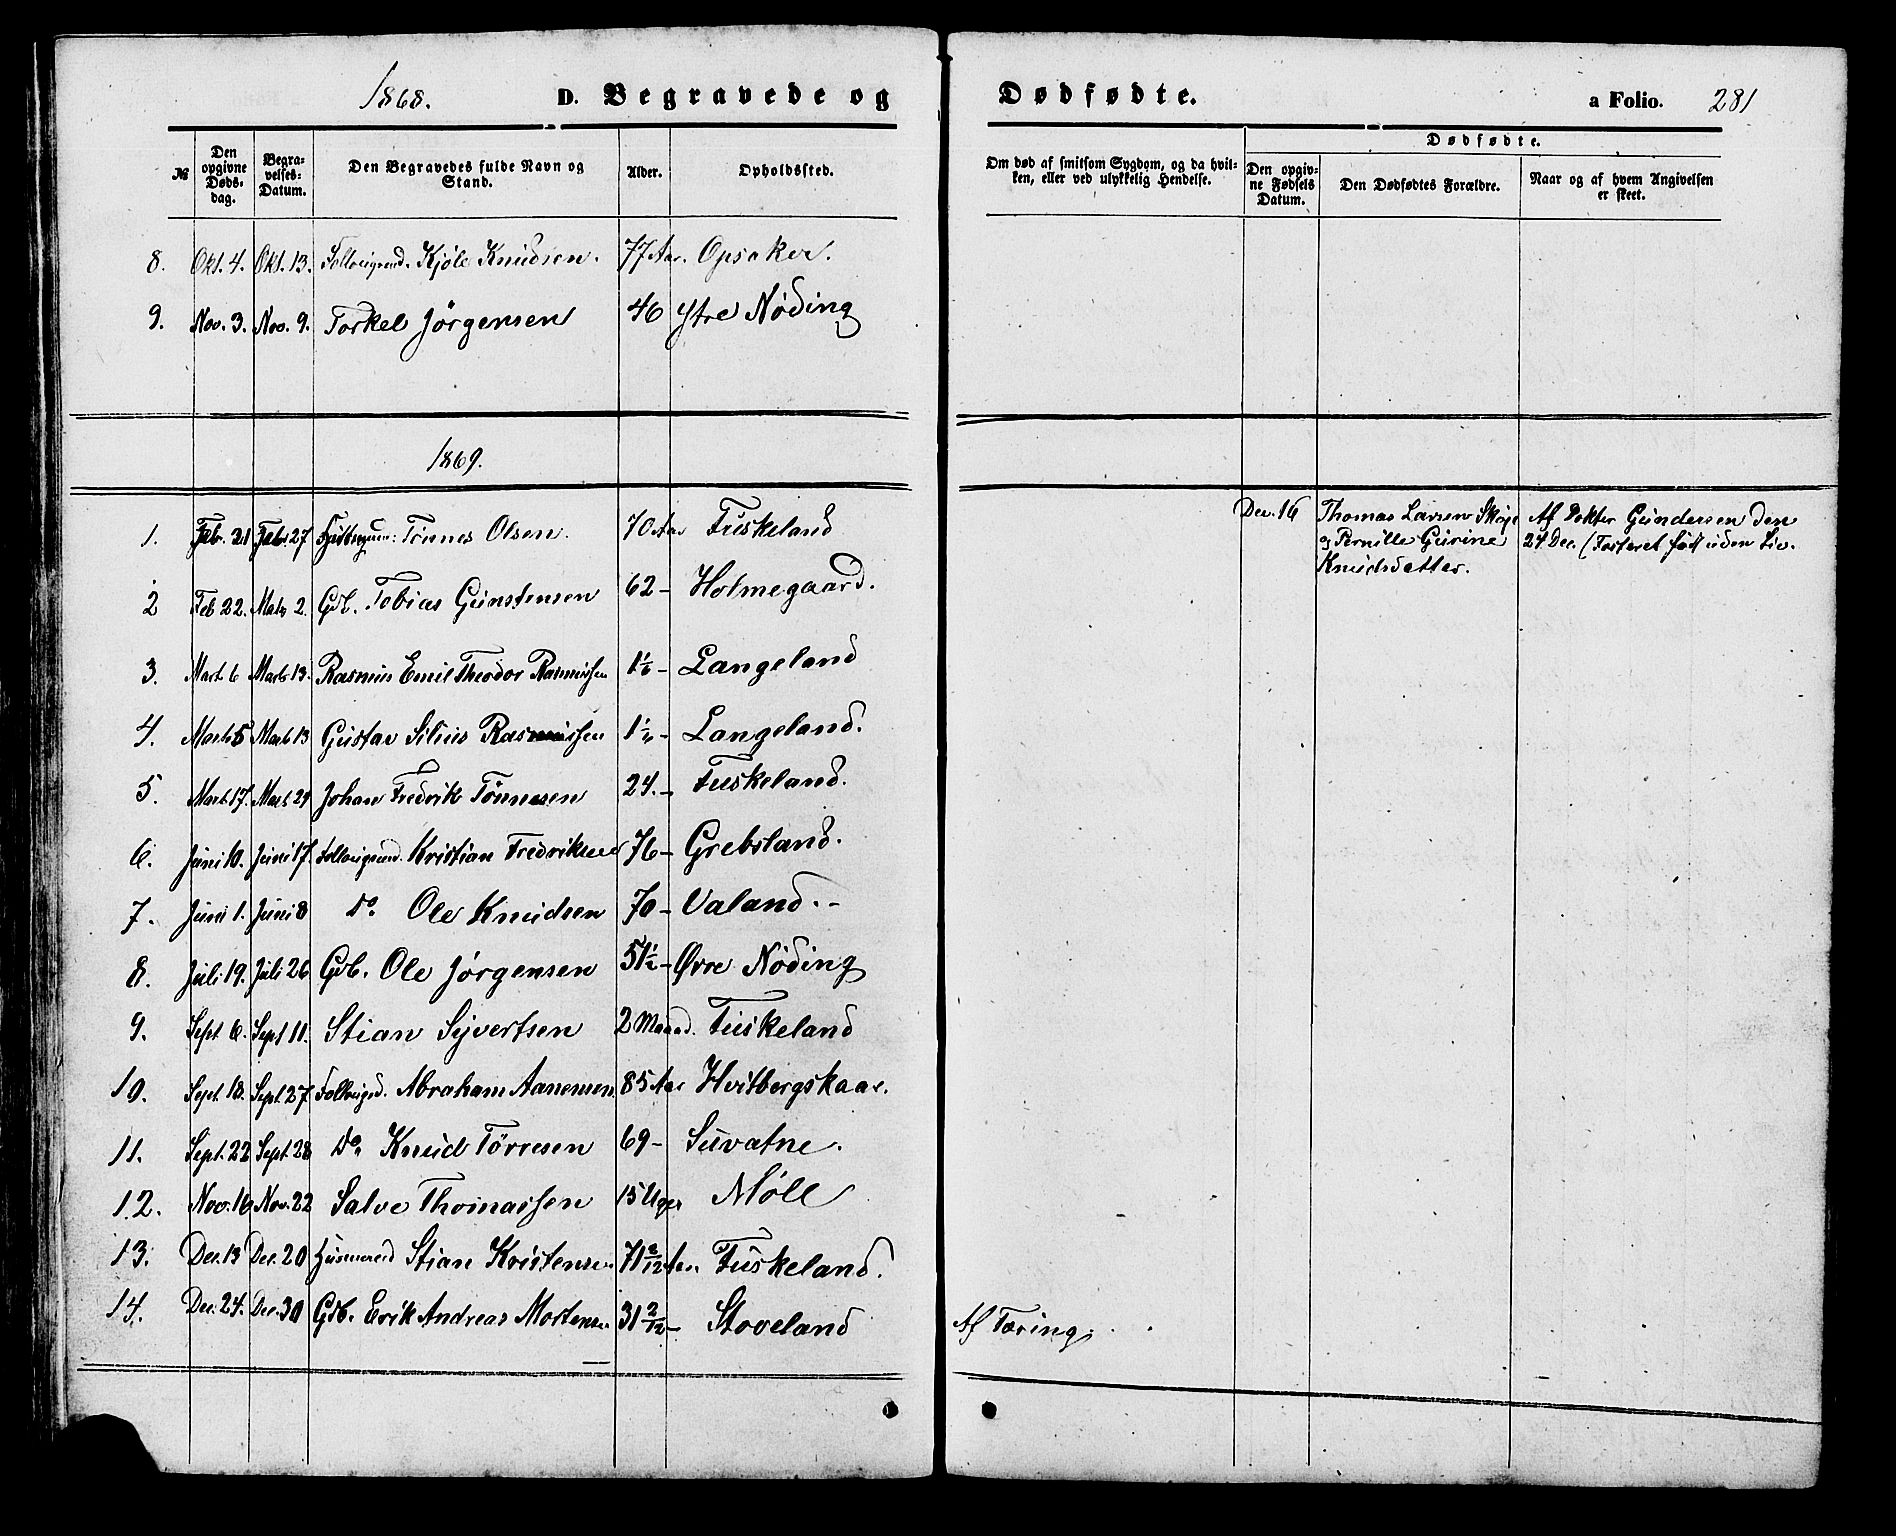 1868. D. Begravede og Dødfødte. a Folio. 281
№ Den opgivne Døds-dag. Begra-velses-Datum. Den Begravedes fulde Navn og Stand. Alder. Opholdssted. Om død af smitsom Sygdom, og da hvil-ken, eller ved ulykkelig Hendelse. Dødfødte. Den opgiv-ne Fødsels Datum. Den Dødfødtes Forældre. Naar og af hvem Angivelsen er skeet.
8. Okt. 4. Okt. 13. Kjöle Knudsen. 77 Aar. Opsaker.
9. Nov. 3. Nov. 9. Torkel Jörgensen 46 Ytre Nöding
1869.
1. Feb. 21 Feb. 27 Tönnes Olsen. 70 Aar Tuskeland
Dec. 16 Thomas Larsen Sköie Af Doktor Gundersen den
og Pernille Gurine 24 Dec. (Fosteret født uden Liv.
Knudsdatter.
2 Feb 22. Marts 2. Gdb. Tobias Gunstensen 62 – Holmegaard.
3. Mart. 6 Marts 13. Rasmus Emil Theodor Rasmussen 1½ – Langeland
4. Marts 5 Marts 13 Gustav Silius Rasmussen Langeland.
5. Marts 17. Marts 24 Johan Fredrik Tönnesen 24. – Tuskeland.
6. Juni 10. Juni 17. Kristian Fredriksen 76 – Grebstand.
7. Juni 1. Juni 8 Do. Ole Knudsen 70 – Valand. –
8. Juli 19. Juli 26 Gdb. Ole Jörgensen 51½ – Øvre Nöding
9. Sept 6. Sept 11. Stian Syvertsen 2 Maaned. Tuskeland
10. Sept. 18. Sept. 27 Abraham Aanensen 85 Aar Hvitbergskaar.
11. Sept. 22 Sept. 28 Do. Knud Törresen 69 – Suvatne.
12. Nov. 16 Nov. 22 Salve Thomassen 15 Uger Möll
13. Dec. 13 Dec. 20 Husmand Stian Kristensen 71 2/12 Aar. Tuskeland.
14. Dec. 24. Dec. 30 Gdb. Erik Andreas Mortensen 31 2/12 – Stoveland Af Tæring.